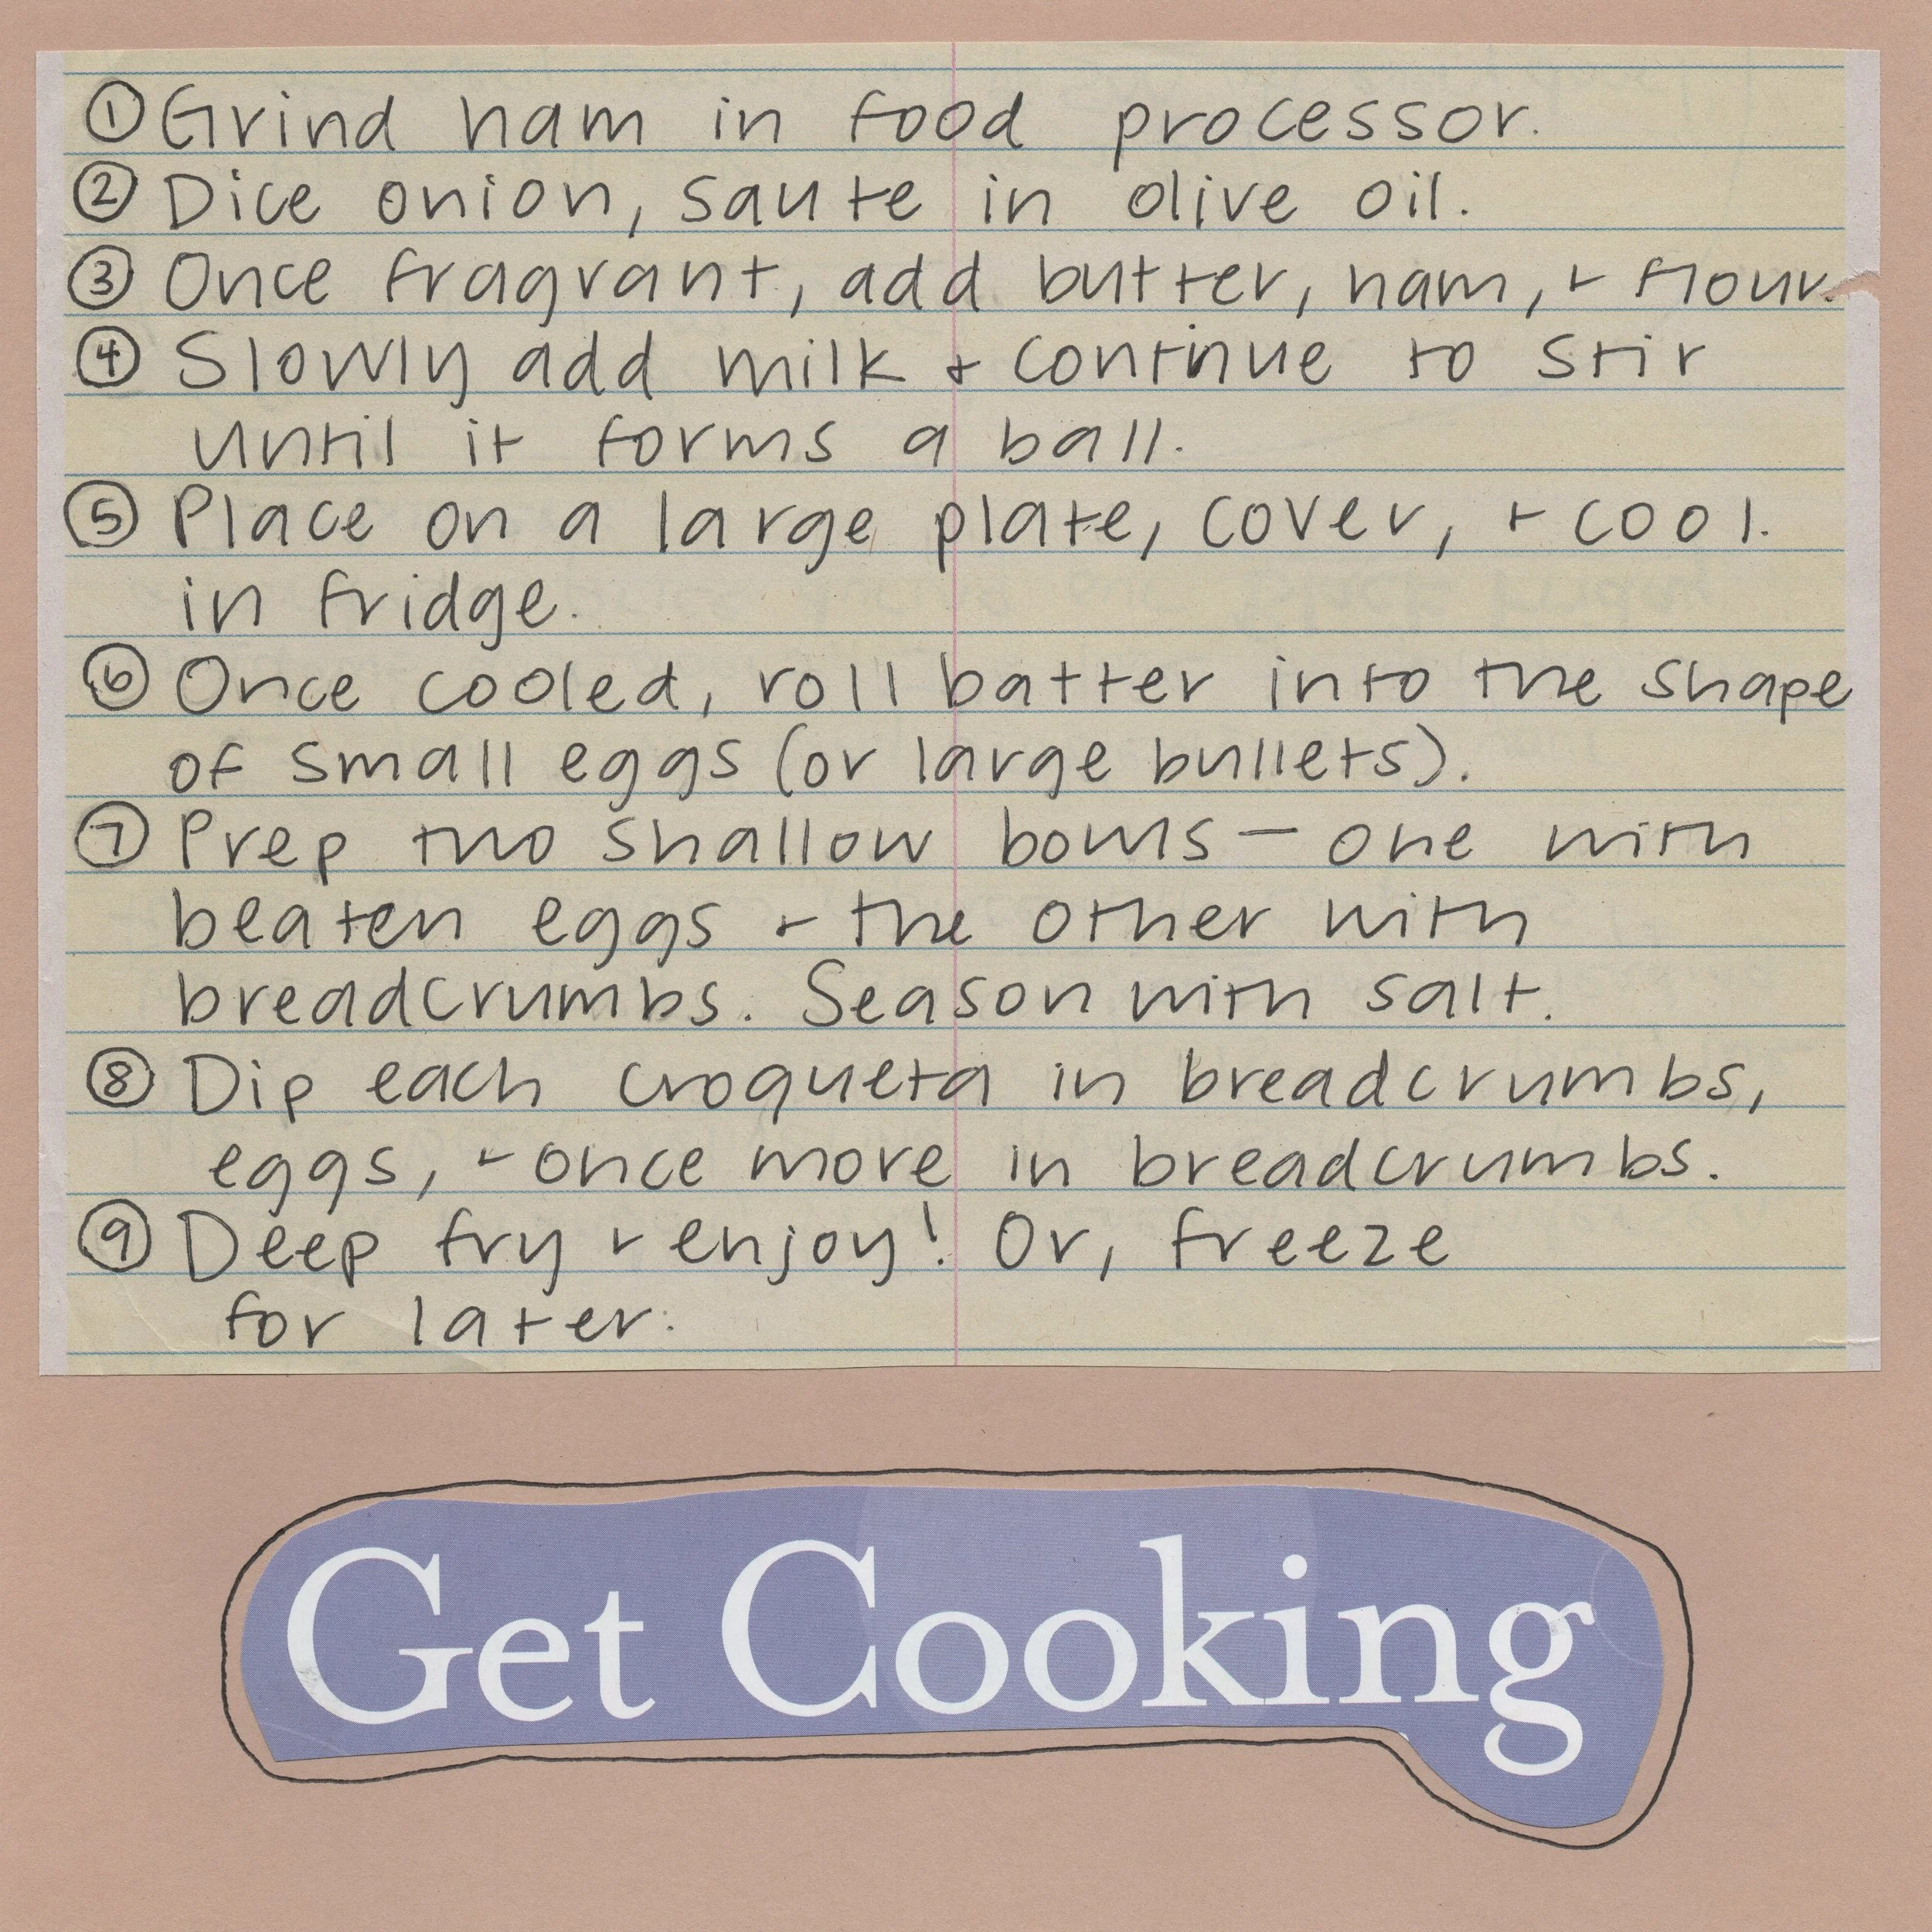 ① Grind ham in food processor.
② Dice onion, saute in olive oil.
③ Once fragrant, add butter, ham, + flour.
④ Slowly add milk + continue to stir
until it forms a ball.
⑤ Place on a large plate, cover, + cool.
in fridge.
⑥ Once cooled, roll batter into the shape
of small eggs (or large bullets).
⑦ Prep two shallow bowls — one with
beaten eggs + the other with
breadcrumbs. Season with salt.
⑧ Dip each croqueta in breadcrumbs,
eggs, + once more in breadcrumbs.
⑨ Deep fry + enjoy! Or, freeze
for later.
Get Cooking